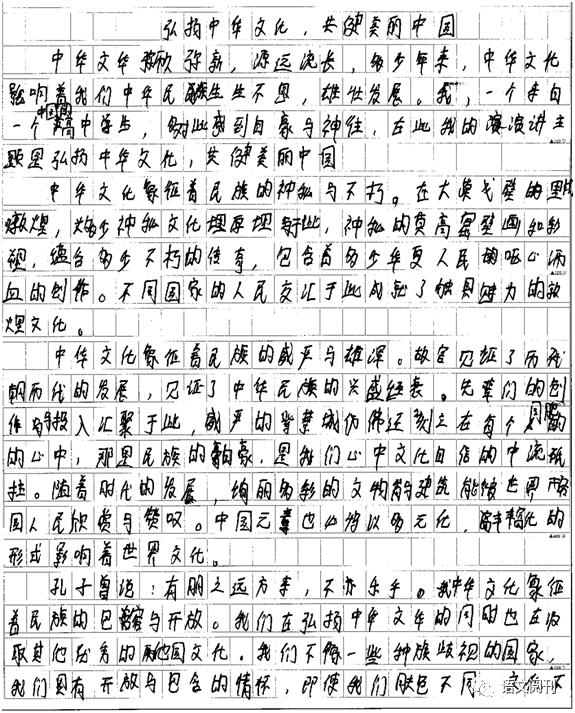 弘扬中华文化，共健美丽中国
中华文华欣弥新，源远流长，多少年来，中华文化
影响着我们中华民族生生不息，雄壮发展。我，一个来自
一个中国高中学生，对此感到自豪与神往，在此我的演演讲主
题是弘扬中华文化，共健美丽中国
中华文化象征着民族的神秘与不朽。在大漠戈壁的
敦煌，多少神秘文化埋于此，神秘的莫高窟壁画和彩
塑，蕴含多少不朽的传奇，包含着多少华夏人民的呕心沥
血的创作。不同国家的人民交汇于此成就了独具魅力的敦
煌文化。
中华文化象征着民族的威严与雄浑。故宫见证了历代
朝代的发展，见证了中华民族的兴盛经衰。先辈们的创
作与投入汇聚于此，威严的紫禁城仿佛还刻立在每个国人的
的心中，那是民族的自豪，是我们心中文化自信的中流砥
柱。随着时代的发展，绚丽多彩的文物与建筑能被世界
国人民欣赏与赞叹。中国元素也必将以多元化，丰富化的
形式影响着世界文化。
孔子曾说：有朋之远方来，不亦乐乎。我中华文化象征
着民族的包容与开放。我们在弘扬中华文华的同时也在吸
取其他优秀的他国文化。我们不像一些种族歧视的国家，
我们具有开放与包含的情怀，即使我们肤色不同，文化不
语文周刊